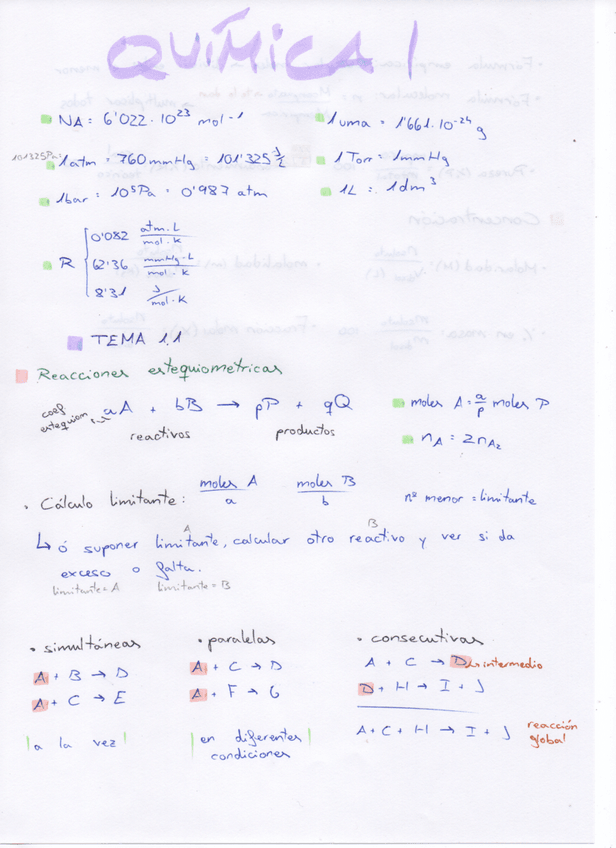 QUÍMICA I
NA = 6'022 · 10²³ mol-1
1 uma = 1'661 · 10⁻²⁴ g
101325 Pa =
1 atm = 760 mmHg = 101'325 J/L
1 Torr = 1 mmHg
1 bar = 10⁵ Pa = 0'987 atm
1L = 1 dm³
R { 0'082 atm · L / mol · K
62'36 mmHg · L / mol · K
8'31 J / mol · K
TEMA 1.1
Reacciones estequiometricas
coef estequiom. aA + bB → pP + qQ
reactivos productos
moles A = a/p moles P
nA = 2nA₂
· Cálculo limitante: moles A / a moles B / b nº menor = limitante
A B
↳ ó suponer limitante, calcular otro reactivo y ver si da
exceso o falta.
limitante = A limitante = B
· simultáneas
A + B → D
A + C → E
| a la vez |
· paralelas
A + C → D
A + F → G
| en diferentes |
condiciones
· consecutivas
A + C → D → intermedio
D + H → I + J
A + C + H → I + J reacción
global